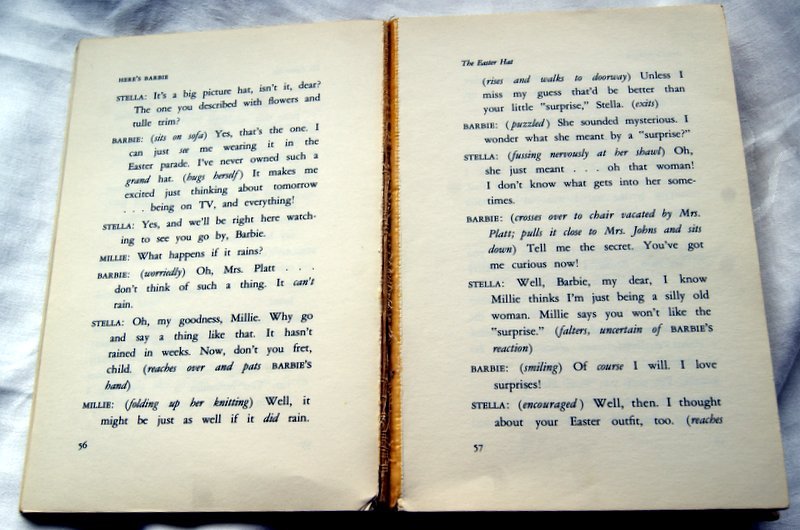 HERE'S BARBIE
STELLA: It's a big picture hat, isn't it, dear?
The one you described with flowers and
tulle trim?
BARBIE: (sits on sofa) Yes, that's the one. I
can just see me wearing it in the
Easter parade. I've never owned such a
grand hat. (hugs herself) It makes me
excited just thinking about tomorrow
. . . being on TV, and everything!
STELLA: Yes, and we'll be right here watch-
ing to see you go by, Barbie.
MILLIE: What happens if it rains?
BARBIE: (worriedly) Oh, Mrs. Platt . . .
don't think of such a thing. It can't
rain.
STELLA: Oh, my goodness, Millie. Why go
and say a thing like that. It hasn't
rained in weeks. Now, don't you fret,
child. (reaches over and pats BARBIE'S
hand)
MILLIE: (folding up her knitting) Well, it
might be just as well if it did rain.
56
The Easter Hat
(rises and walks to doorway) Unless I
miss my guess that'd be better than
your little "surprise," Stella. (exits)
BARBIE: (puzzled) She sounded mysterious. I
wonder what she meant by a "surprise?"
STELLA: (fussing nervously at her shawl) Oh,
she just meant . . . oh that woman!
I don't know what gets into her some-
times.
BARBIE: (crosses over to chair vacated by Mrs.
Platt; pulls it close to Mrs. Johns and sits
down) Tell me the secret. You've got
me curious now!
STELLA: Well, Barbie, my dear, I know
Millie thinks I'm just being a silly old
woman. Millie says you won't like the
"surprise." (falters, uncertain of BARBIE'S
reaction)
BARBIE: (smiling) Of course I will. I love
surprises!
STELLA: (encouraged) Well, then. I thought
about your Easter outfit, too. (reaches
57